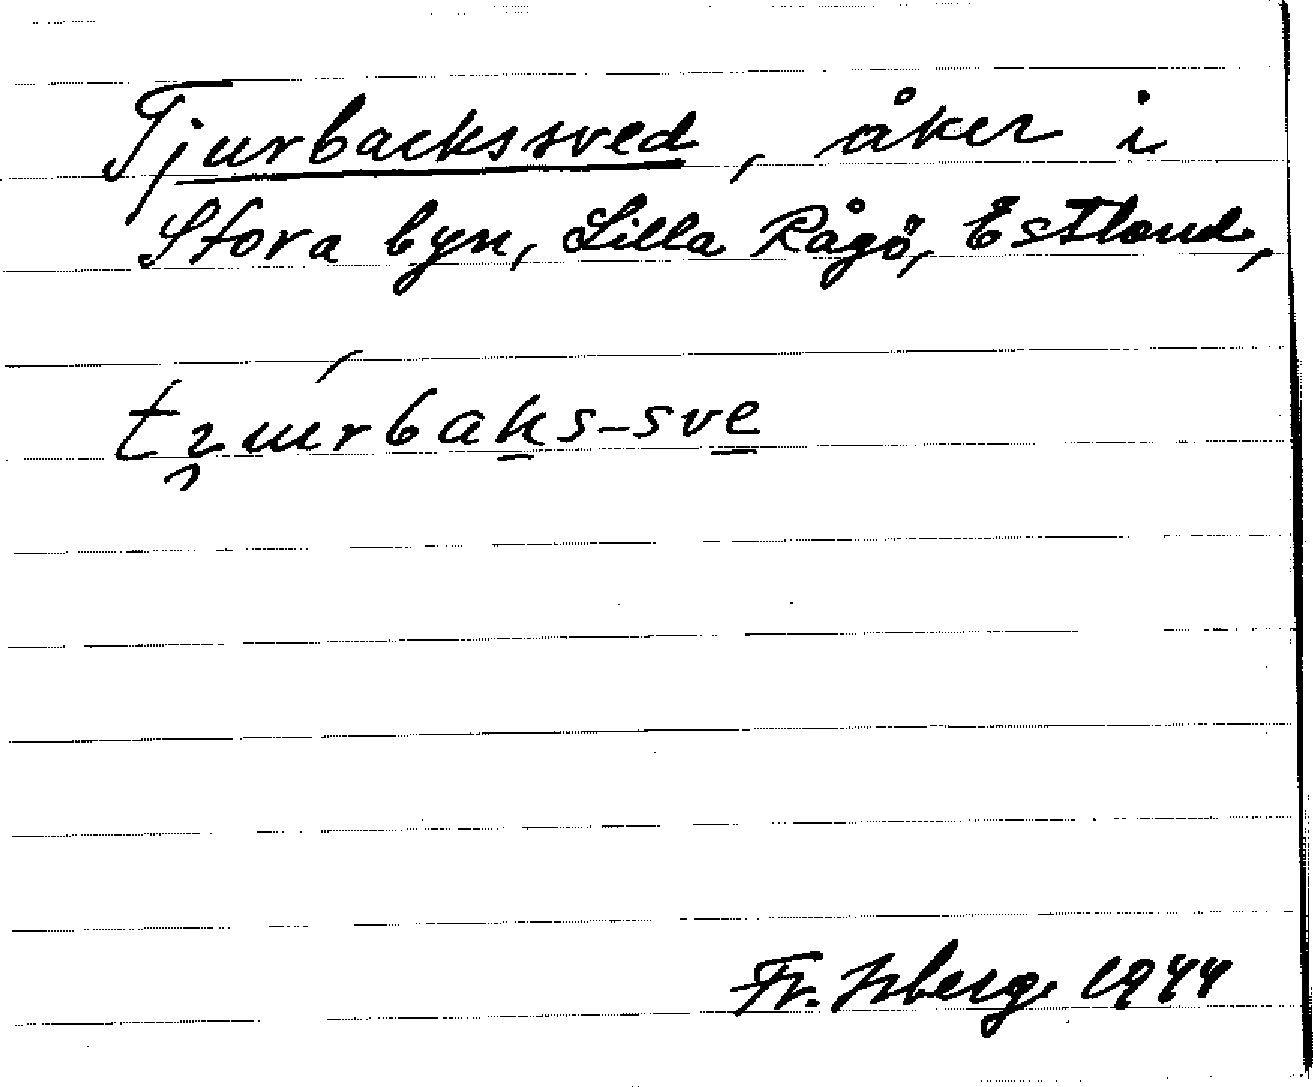 Tjurbackssved, åker i
Stora byn, Lilla Rågö, Estland,
Fr. Isberg 1944